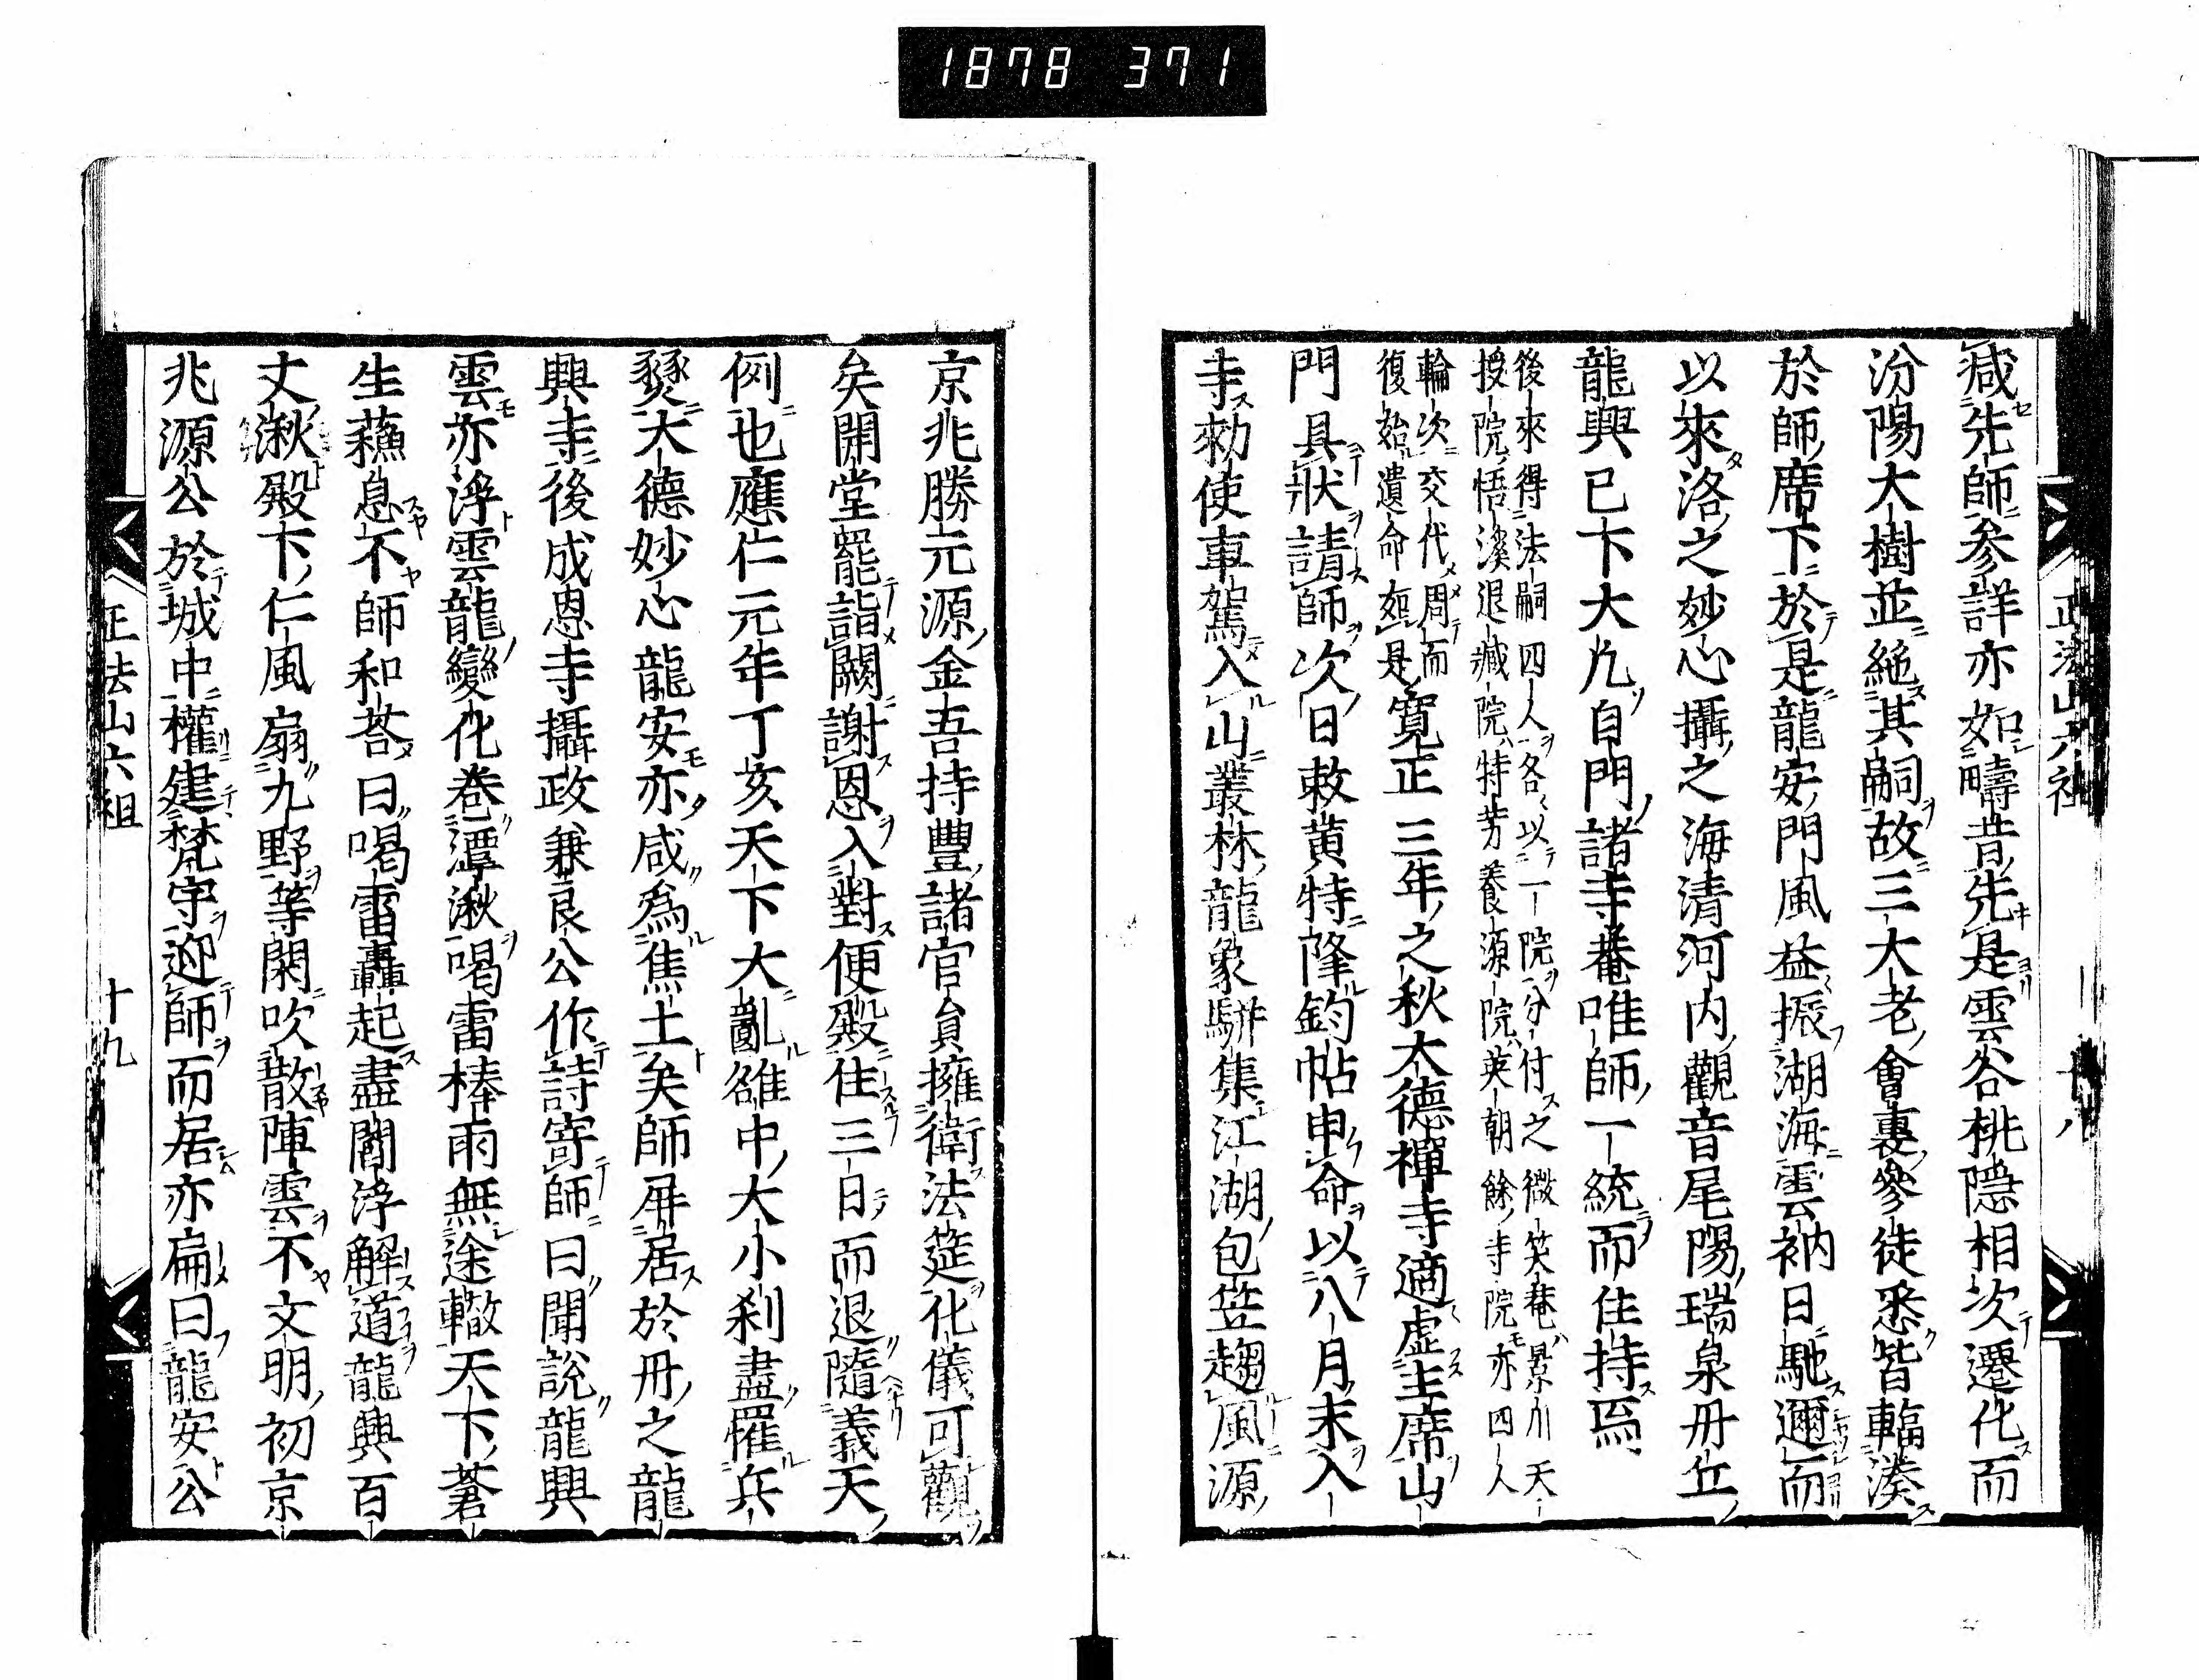 1878 371
正法山六祖
十八
減先師參詳亦如疇昔先是雲谷桃隠相次遷化而
汾陽大樹並絶其嗣故三大老會裏參徒悉皆輻湊
於師席下於是龍安門風益振湖海雲衲日馳邇而
以來洛之妙心攝之海清河内觀音尾陽瑞泉丹丘
龍興已下大凡自門諸寺菴唯師一統而住持焉
後來得法嗣四人各〻以一院分付之微笑菴景川天
授院悟溪退藏院特芳養源院英朝餘寺院亦四人
輪次交代周而
復始遺命如是寛正三年之秋大德禪寺適虚主席山
門具狀請師次日敕黄特降鈞帖申命以八月末入
寺勅使車駕入山叢林龍象駢集江湖包笠趨風源
京兆勝元源金吾持豐諸官貟擁衛法筵化儀可觀
矣開堂罷詣闕謝恩入對便殿住三日而退隨義天
例也應仁元年丁亥天下大亂雒中大小刹盡罹兵
燹大德妙心龍安亦咸爲焦土矣師屏居於丹之龍
興寺後成恩寺攝政兼良公作詩寄師曰聞說龍興
雲亦浮雲龍變化卷潭湫喝雷棒雨無途轍天下蒼
生蘓息不師和荅曰喝雷轟起盡閻浮解道龍興百
丈湫殿下仁風扇九野等閑吹散陣雲不文明初京
兆源公於城中權建梵宇迎師而居亦扁曰龍安公
正法山六祖
十九